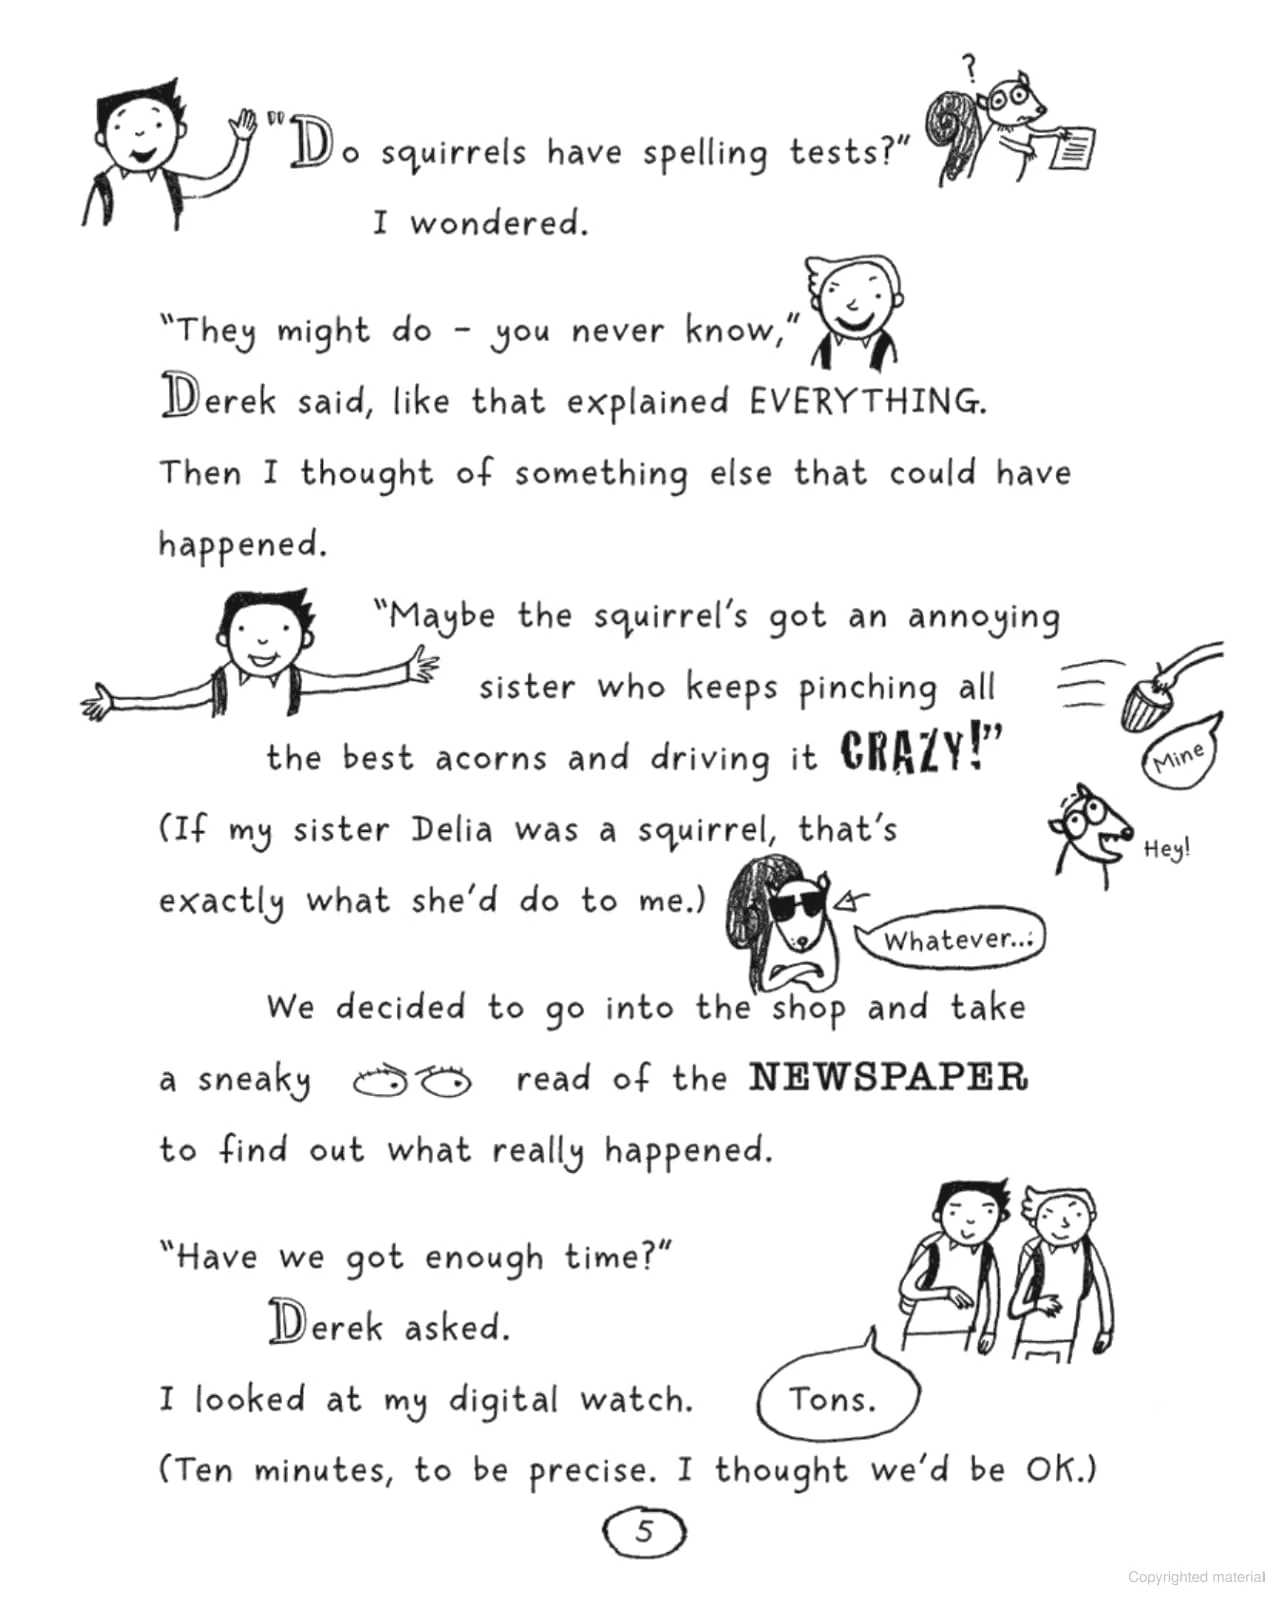 ?
"Do squirrels have spelling tests?"
I wondered.
"They might do – you never know,"
Derek said, like that explained EVERYTHING.
Then I thought of something else that could have
happened.
"Maybe the squirrel's got an annoying
sister who keeps pinching all
the best acorns and driving it CRAZY!"
Mine
(If my sister Delia was a squirrel, that's
Hey!
exactly what she'd do to me.)
Whatever...
We decided to go into the shop and take
a sneaky read of the NEWSPAPER
to find out what really happened.
"Have we got enough time?"
Derek asked.
I looked at my digital watch.
Tons.
(Ten minutes, to be precise. I thought we'd be OK.)
5
Copyrighted material